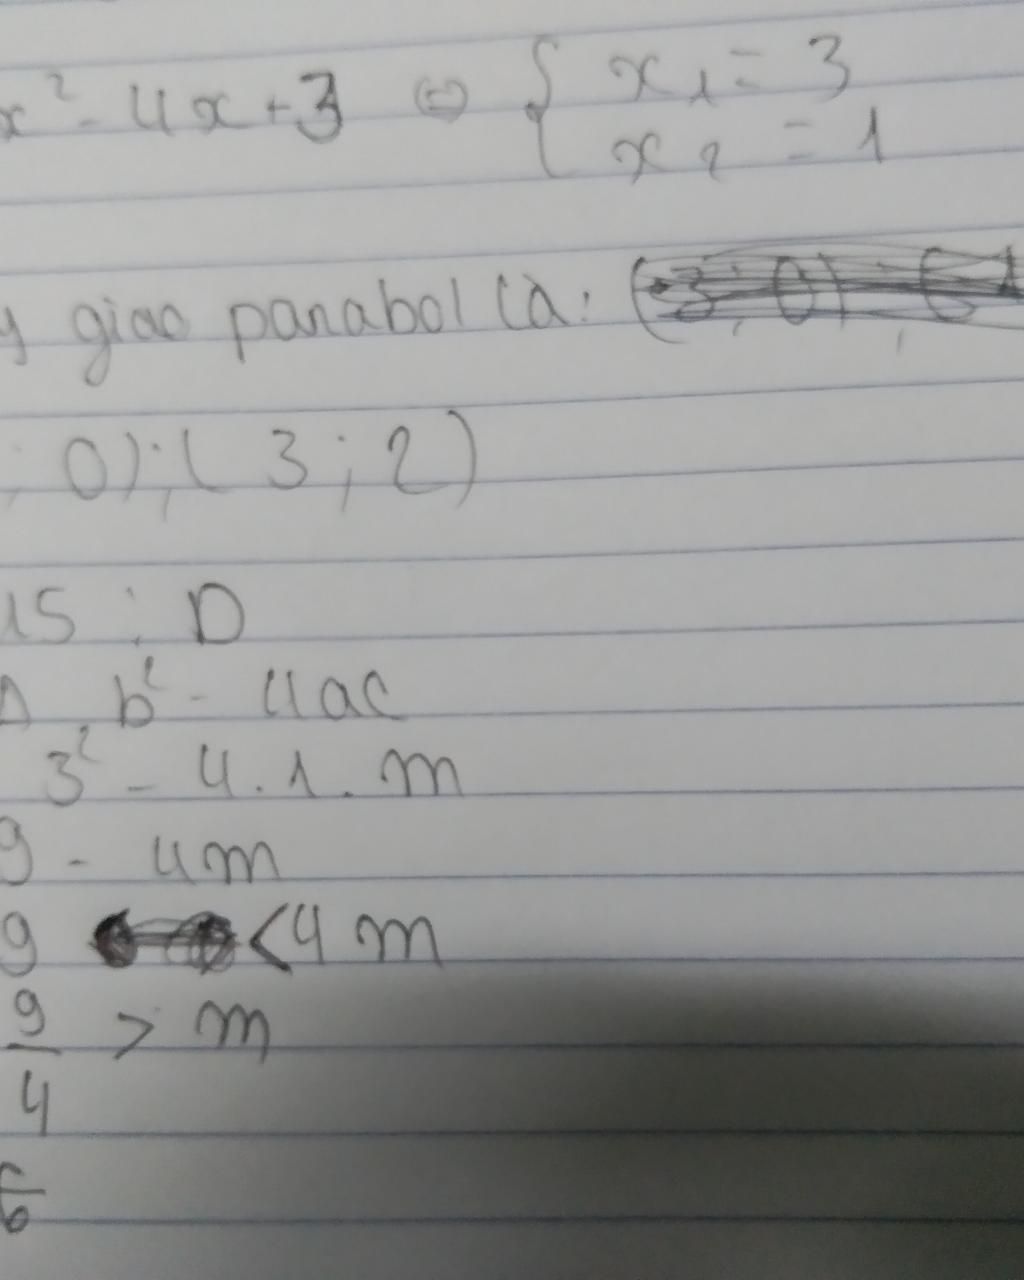 x² - 4x + 3 ⇔ { x₁ = 3
x₂ = 1
y giao parabol là:
; 0) ; ( 3 ; 2 )
15 : D
Δ b² - 4ac
3² - 4 . 1 . m
9 - 4m
9 < 4 m
9/4 > m